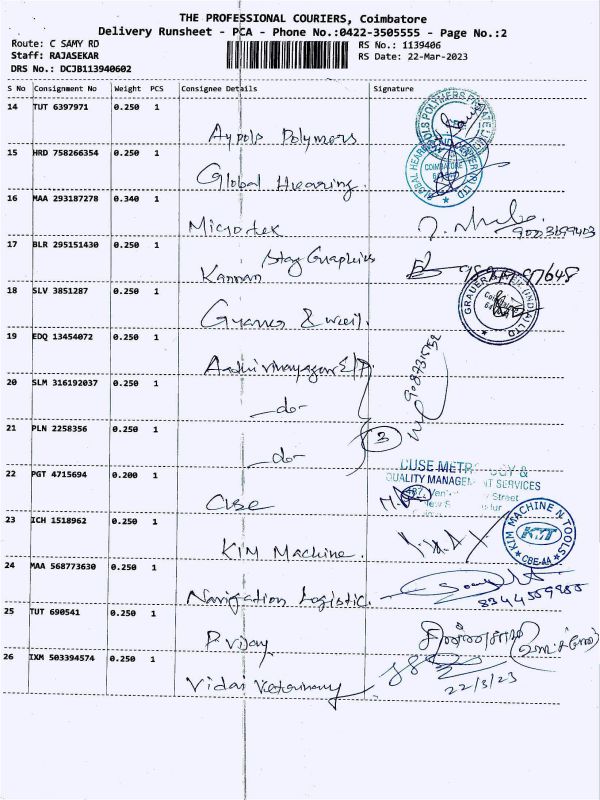 THE PROFESSIONAL COURIERS, Coimbatore
Delivery Runsheet - PCA - Phone No.:0422-3505555 - Page No.:2
Route: C SAMY RD
Staff: RAJASEKAR
DRS No.: DCJB113940602
RS No.: 1139406
RS Date: 22-Mar-2023
S No Consignment No Weight PCS Consignee Details Signature
14 TUT 6397971 0.250 1
Aypols Polymers
15 HRD 758266354 0.250 1
Global Hearing.
COIMBATORE
16 MAA 293187278 0.340 1
Microtek
17 BLR 295151430 0.250 1
Stag Graphics
Kannan
18 SLV 3851287 0.250 1
Grauer & weil.
GRAUER & WEIL (INDIA) LTD
19 EDQ 13454072 0.250 1
Aadhivinayagar E/P
20 SLM 316192037 0.250 1
-do-
21 PLN 2258356 0.250 1
3
-do-
22 PGT 4715694 0.200 1
CUSE METR
QUALITY MANAGEMENT SERVICES
Street
CUSE
23 ICH 1518962 0.250 1
KIM Machine.
KIM MACHINE N TOOLS
KMT
CBE-AA
24 MAA 568773630 0.250 1
Navigation Logistic.
25 TUT 690541 0.250 1
P. Vijay
26 IXM 503394574 0.250 1
Vidai Veterinary
22/3/23